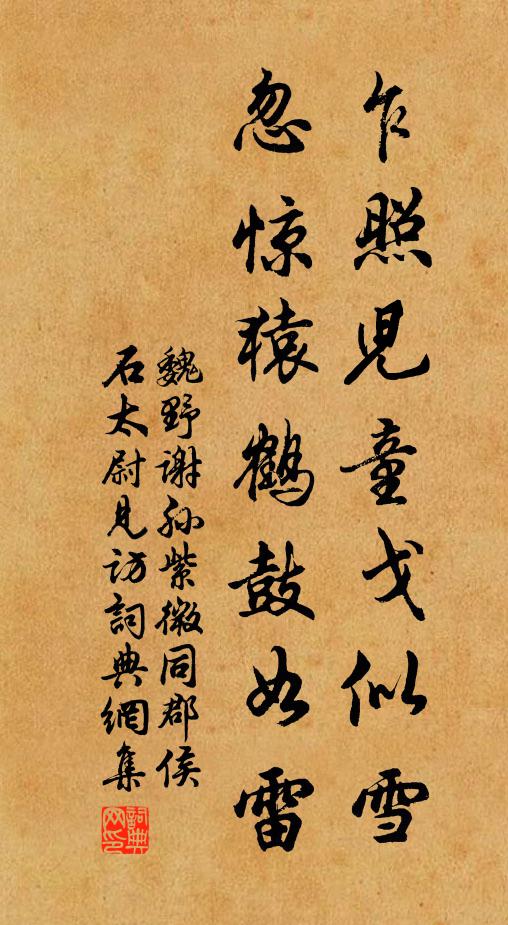 乍照児童戈似雪
忽惊猿鹤鼓如雷
魏野谢孙紫微同郡侯
石太尉見访詞典網集
詞典
网印